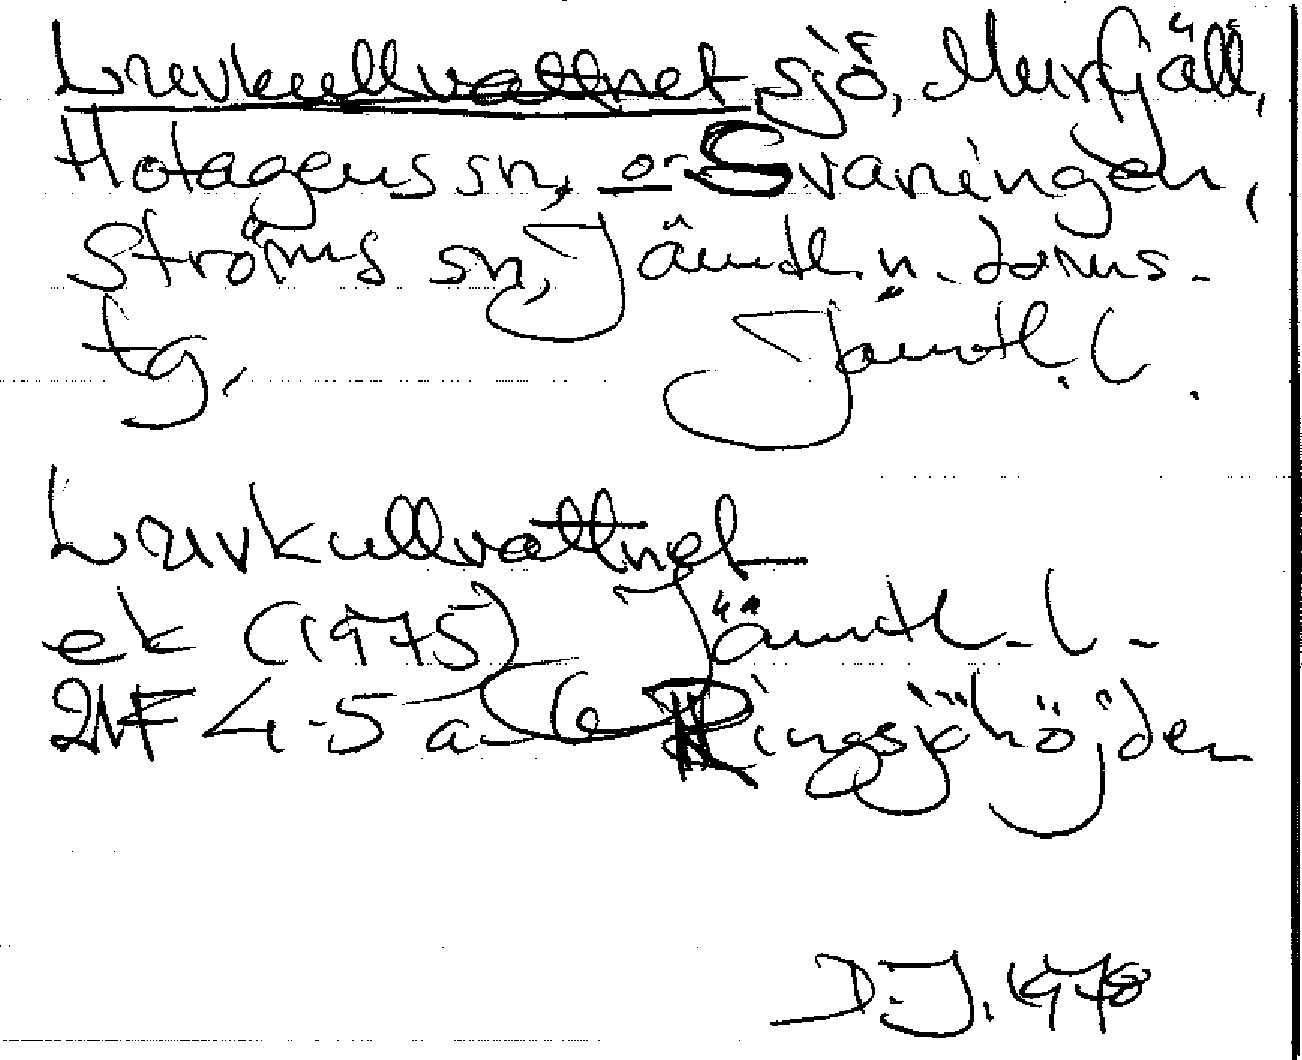 Luvkullvattnet sjö, Murfjäll,
Hotagens sn, o. Svaningen,
Ströms sn, Jämtl. n. doms-
tg, Jämtl. l.
Luvkullvattnet
ek (1975) Jämtl. l.
21F 4-5 a-b Ringsjöhöjden
D.J. 1978